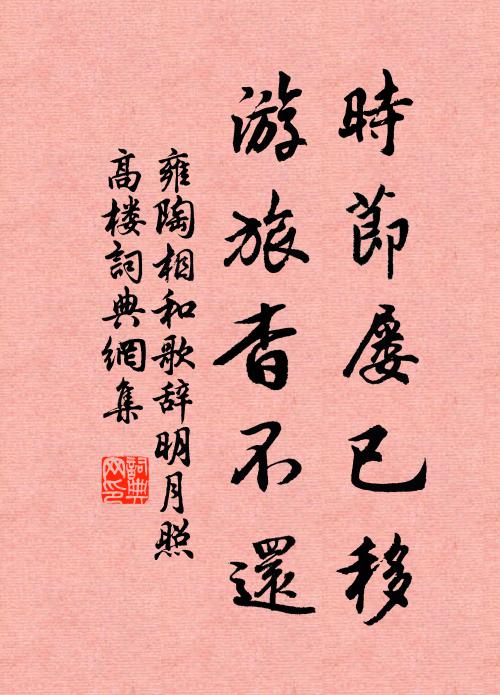 時節屡已移
游旅杳不還
雍陶相和歌辞明月照
高楼詞典網集
詞典網印